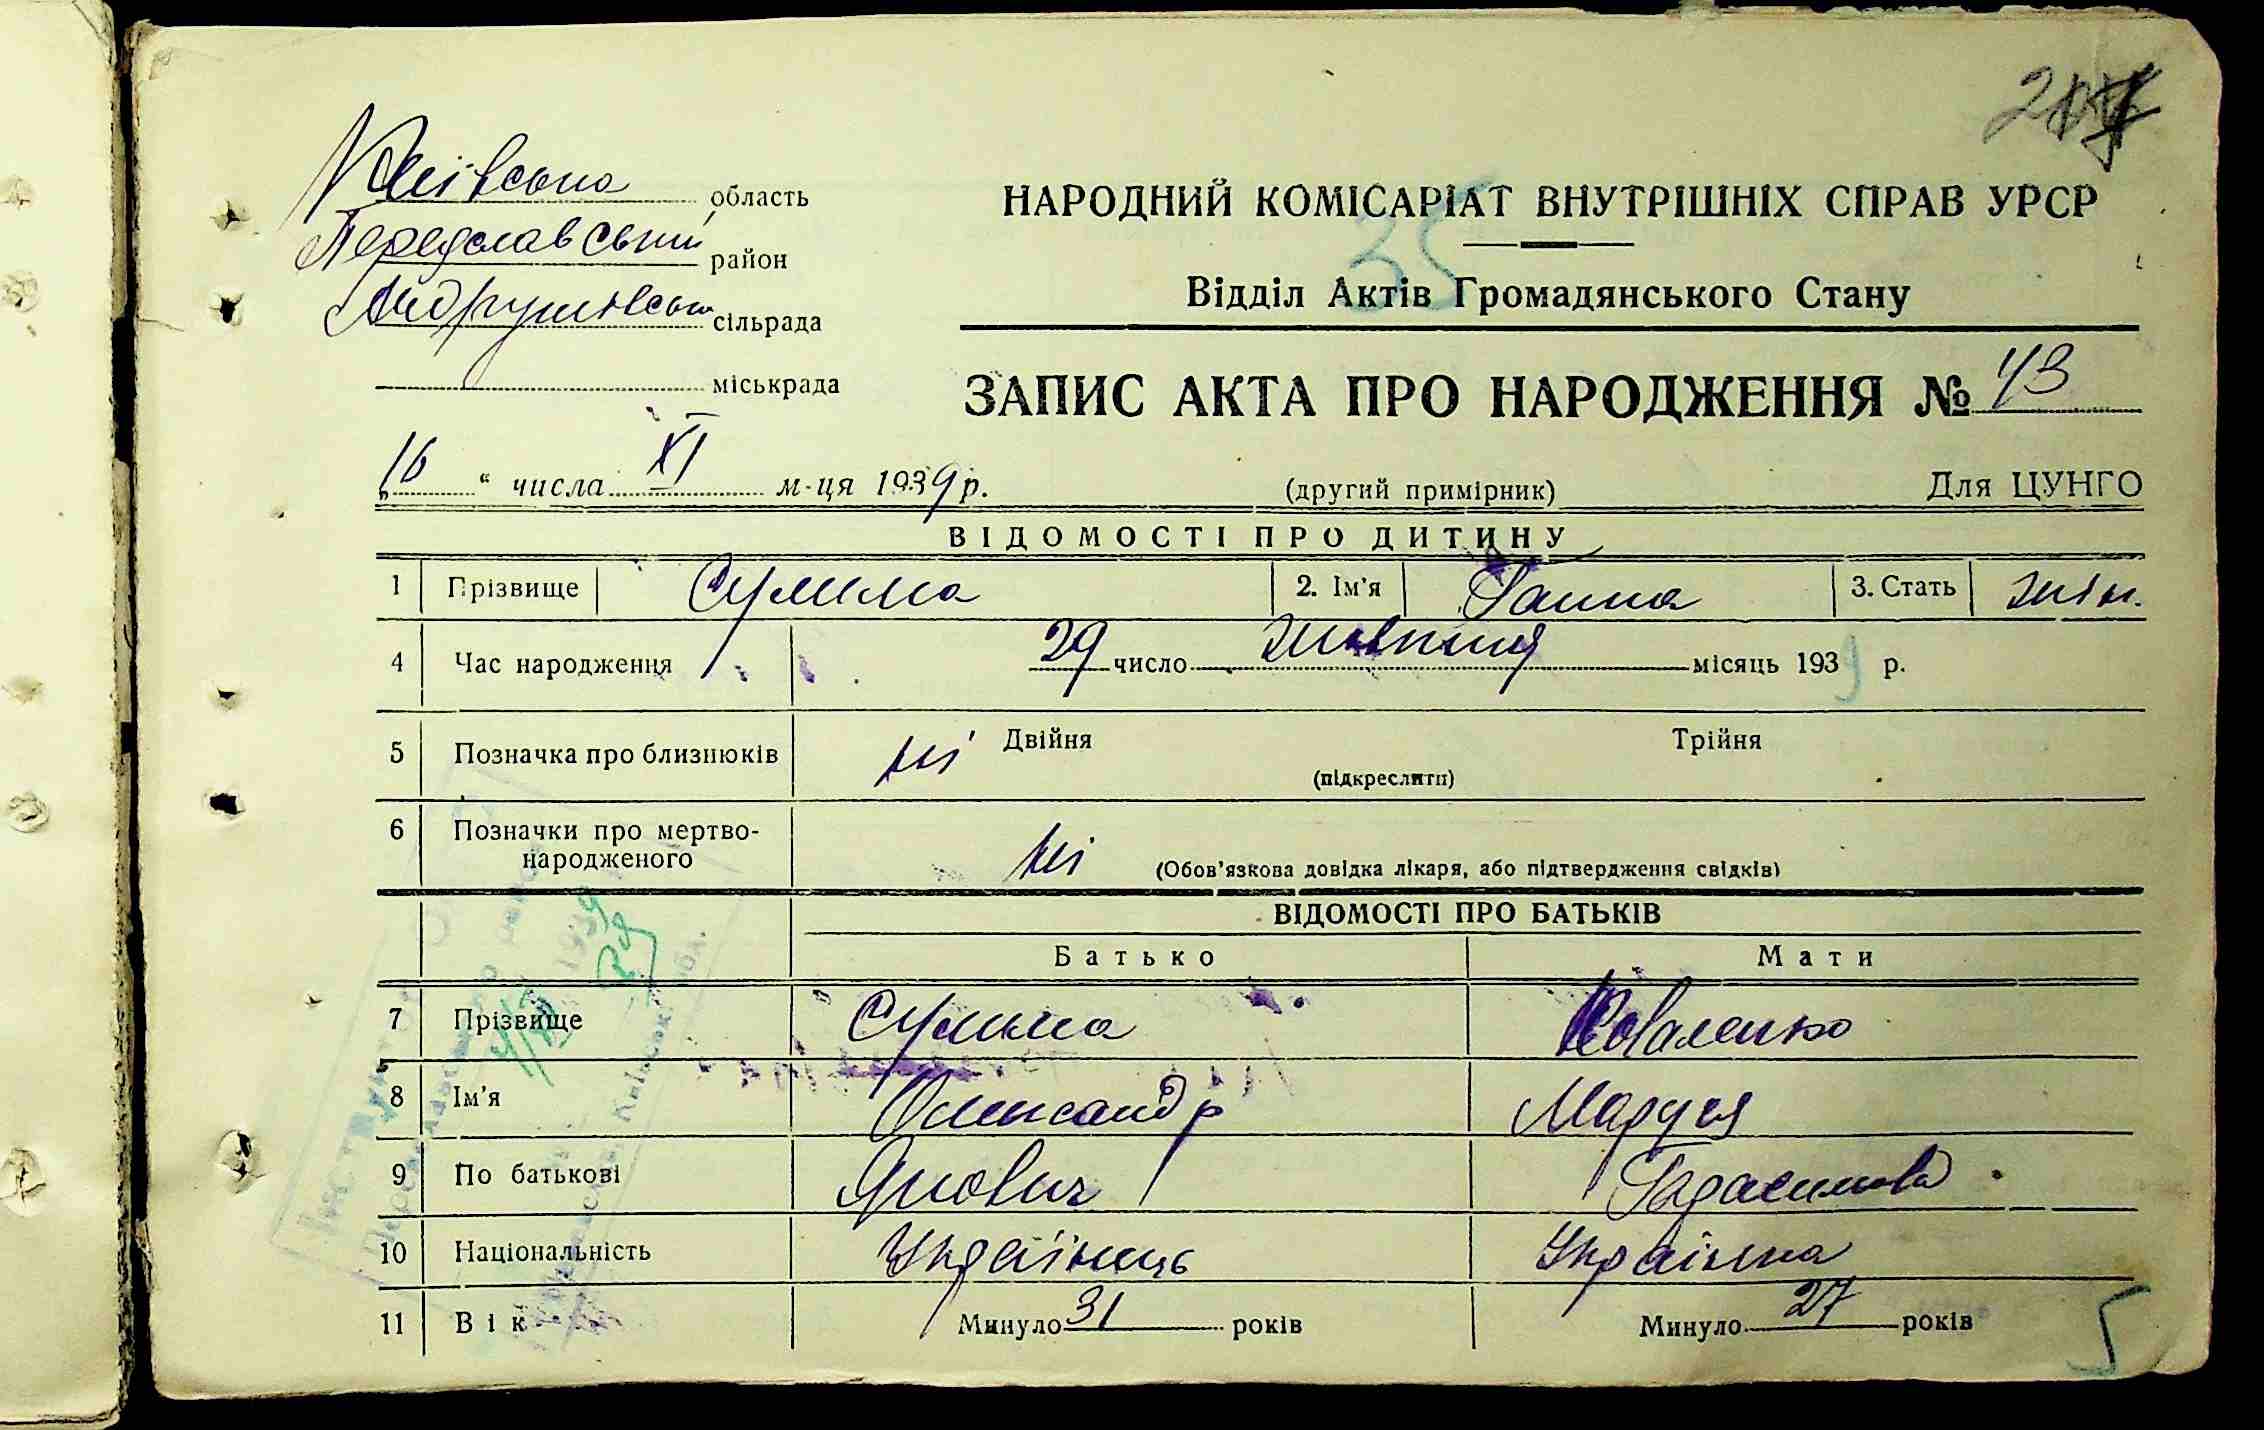 Київська область
Переяславський район
Андрушівська сільрада
міськрада
НАРОДНИЙ КОМІСАРІАТ ВНУТРІШНІХ СПРАВ УРСР
35
Відділ Актів Громадянського Стану
ЗАПИС АКТА ПРО НАРОДЖЕННЯ № 43
„16“ числа XI м-ця 1939 р.
(другий примірник)
Для ЦУНГО
ВІДОМОСТІ ПРО ДИТИНУ
1 Прізвище Сулима 2. Ім'я Ганна 3. Стать жін.
4 Час народження 29 число жовтня місяць 1939 р.
5 Позначка про близнюків ні Двійня Трійня
(підкреслити)
6 Позначки про мертво-
народженого ні (Обов'язкова довідка лікаря, або підтвердження свідків)
ВІДОМОСТІ ПРО БАТЬКІВ
Батько Мати
7 Прізвище Сулима Коваленко
8 Ім'я Олександр Маруся
9 По батькові Якович Герасимовна
10 Національність Українець Українка
11 Вік Минуло 31 років Минуло 27 років
5